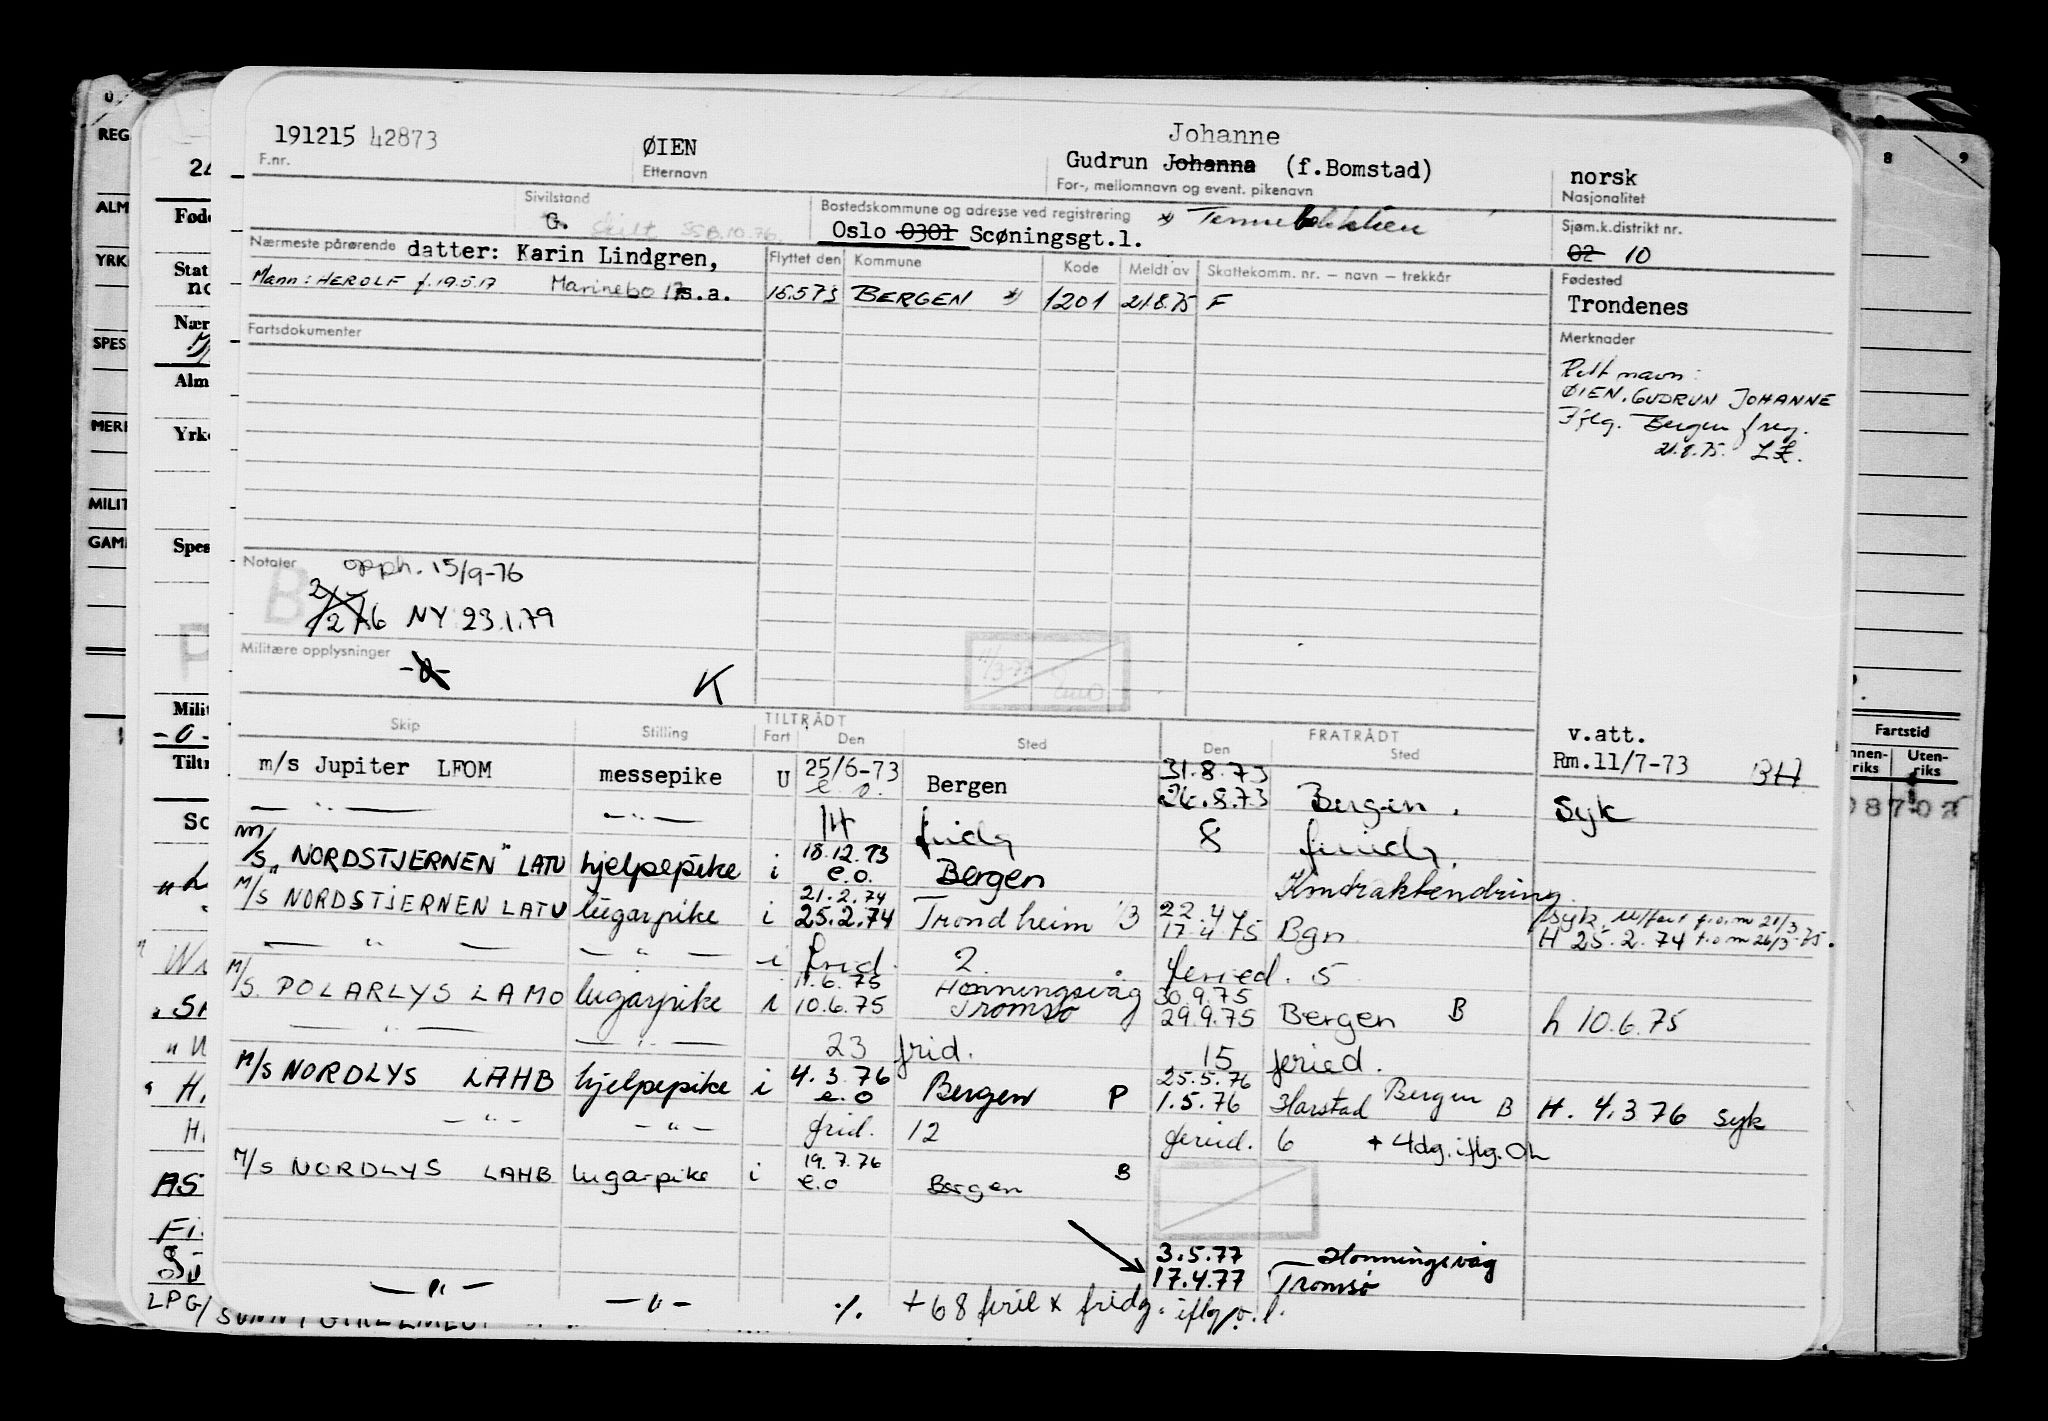 191215 42873
ØIEN
Johanne
Gudrun Johanna (f.Bomstad)
norsk
F.nr.
Etternavn
For-, mellomnavn og event. pikenavn
Nasjonalitet
Sivilstand
G. skilt
Bostedskommune og adresse ved registrering
Oslo 0301 Scøningsgt.1.
Sjøm.k.distrikt nr.
02 10
Nærmeste pårørende datter: Karin Lindgren,
Mann: HEROLF f. 19.5.17 Marinebo s.a.
Flyttet den Kommune Kode Meldt av Skattekomm. nr. – navn – trekkår
16.5.73 BERGEN 1201 21.8.75 F
Fødested
Trondenes
Fartsdokumenter
Merknader
Rett navn:
ØIEN, GUDRUN JOHANNE
Iflg. Bergen f reg.
21.8.75.
Notater opph. 15/9-76
B
2/2 76 NY 23.1.79
Militære opplysninger
-0-
K
Skip Stilling TILTRÅDT Fart Den Sted FRATRÅDT Den Sted
v.att.
Rm.11/7-73 BH
m/s Jupiter LFOM messepike U 25/6-73 e.o. Bergen 31.8.73 26.8.73 Bergen. Syk
— " — — " — 14 fridg 8 feriedg.
M/S "NORDSTJERNEN" LATU hjelpepike i 18.12.73 e.o. Bergen Kontraktendring
M/S NORDSTJERNEN LATU lugarpike i 21.2.74 25.2.74 Trondheim 22.4 17.4.75 Bgn. Syk u/fart f.o.m 21/3 t.o.m 26/3-75. H 25.2.74
— " — — " — i frid. 2 feried. 5
M/S. POLARLYS LAMO lugarpike i 11.6.75 10.6.75 Honningsvåg Tromsø 30.9.75 29.9.75 Bergen B h 10.6.75
— " — — " — 23 frid. 15 feried.
M/S NORDLYS LAHB hjelpepike i 4.3.76 e.o Bergen P 25.5.76 1.5.76 Harstad Bergen B H. 4.3 76 syk
- " - - " - frid. 12 feried. 6 + 4dg. iflg. OL
M/S NORDLYS LAHB lugarpike i 19.7.76 e.o Bergen B
3.5.77 Honningsvåg
17.4.77 Tromsø
— " — — " — ./. + 68 ferie x fridg. iflg o.l.
REG
ALM
YRK
SPES
MERK
MILIT
Fartstid
Innen-riks Uten-riks